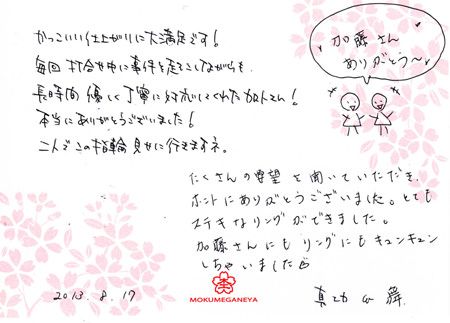 かっこいい仕上がりに大満足です!
毎回 打合せ中に事件を起こしながらも、
長時間 優しく丁寧に対応してくれた加トさん!
本当にありがとうございました!
二人でこの指輪 見せに行きますネ。
加藤さん
ありがとう〜
たくさんの要望を聞いていただき、
ホントにありがとうございました。とても
ステキなリングができました。
加藤さんにも リングにも キュンキュン
しちゃいました
MOKUMEGANEYA
2013.8.17